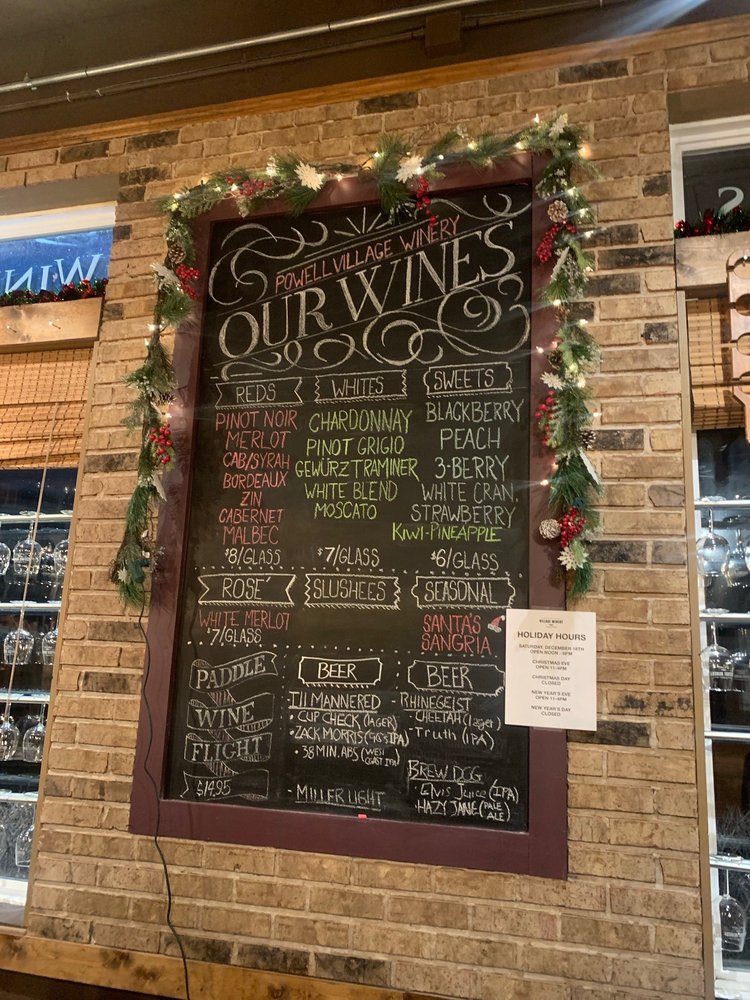 POWELL VILLAGE WINERY
OUR WINES
REDS
PINOT NOIR
MERLOT
CAB/SYRAH
BORDEAUX
ZIN
CABERNET
MALBEC
$8/GLASS
WHITES
CHARDONNAY
PINOT GRIGIO
GEWÜRZTRAMINER
WHITE BLEND
MOSCATO
$7/GLASS
SWEETS
BLACKBERRY
PEACH
3-BERRY
WHITE CRAN.
STRAWBERRY
KIWI-PINEAPPLE
$6/GLASS
ROSÉ
WHITE MERLOT
$7/GLASS
SLUSHEES
SEASONAL
SANTA'S
SANGRIA
PADDLE
WINE
FLIGHT
$14.95
BEER
Ill MANNERED
- CUP CHECK (lAGER)
- ZACK MORRIS (90's IPA)
- 38 MIN. ABS (WEST
COAST IPA)
- MILLER LIGHT
BEER
- RHINEGEIST
- CHEETAH (lager)
- Truth (IPA)
BREW DOG
- Elvis Juice (IPA)
- HAZY JANE (PALE
ALE)
VILLAGE WINERY
HOLIDAY HOURS
SATURDAY, DECEMBER 18TH
OPEN NOON - 6PM
CHRISTMAS EVE
OPEN 11-4PM
CHRISTMAS DAY
CLOSED
NEW YEAR'S EVE
OPEN 11-4PM
NEW YEAR'S DAY
CLOSED
WIN
S